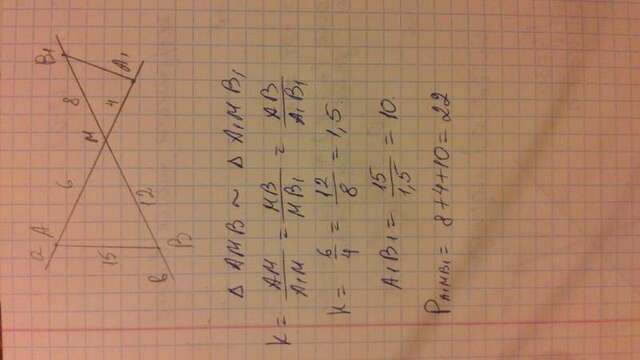 a A 6 M 4 A₁
15 12 8 B₁
b B
Δ AMB ~ Δ A₁MB₁
K = AM/A₁M = MB/MB₁ = AB/A₁B₁
K = 6/4 = 12/8 = 1,5.
A₁B₁ = 15/1,5 = 10.
P_A₁MB₁ = 8+4+10 = 22